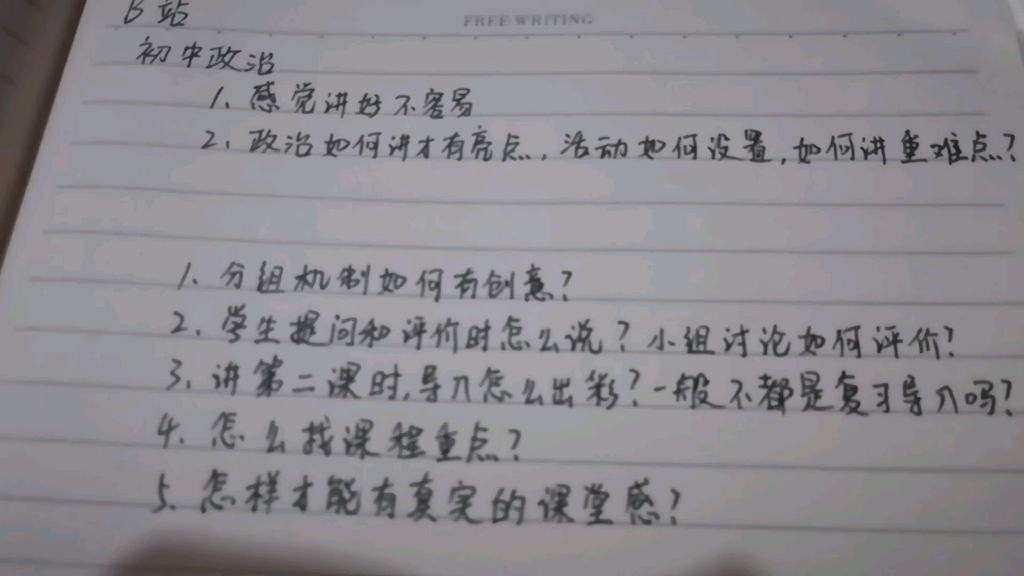 B站
FREE WRITING
初中政治
1、感觉讲好不容易
2、政治如何讲才有亮点，活动如何设置，如何讲重难点？
1、分组机制如何有创意？
2、学生提问和评价时怎么说？小组讨论如何评价？
3、讲第二课时，导入怎么出彩？一般不都是复习导入吗？
4、怎么找课程重点？
5、怎样才能有真实的课堂感？